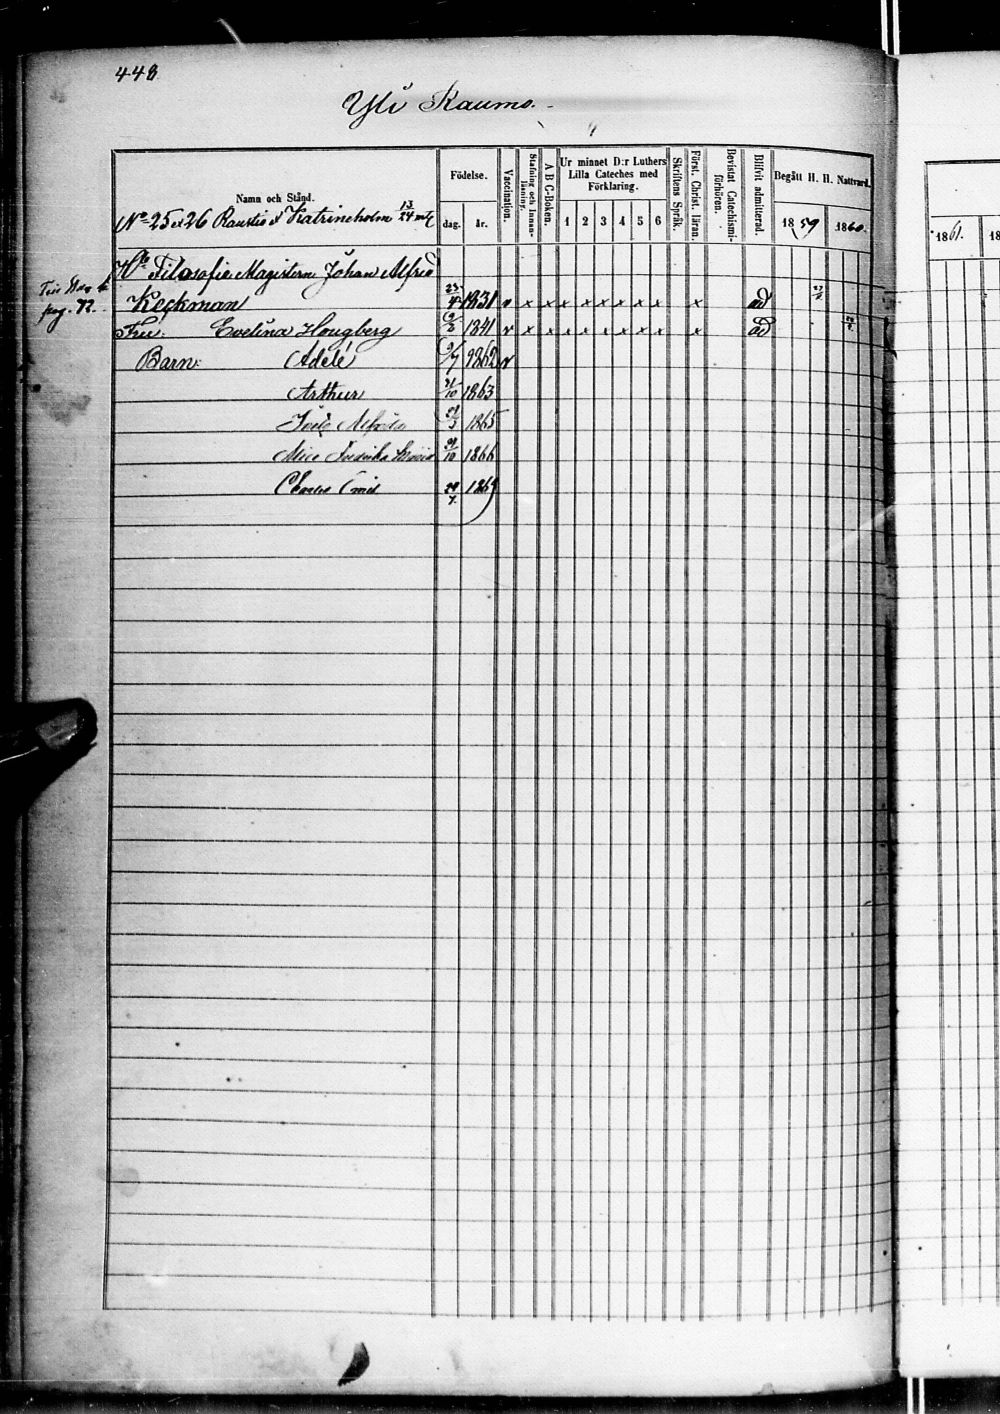 448
Yli Raumo.
Namn och Stånd.
Födelse.
dag. år.
Vaccination.
Stafning och Innanläsning.
A B C-Boken.
Ur minnet D:r Luthers
Lilla Cateches med
Förklaring.
1 2 3 4 5 6
Skriftens Språk.
Först. Christ. läran.
Bevistat Catechismiförhören.
Blifvit admitterad.
Begått H. H. Nattvard.
1859 1860.
1861. 18
No 25 et 26 & Katrineholm 13/24 mtl
Filosofie Magistern Johan Alfred
pag. 72.
Keckman 23/4 1831 v x x x x x x x x x ad
Fru: Evelina Hougberg 1841 v x x x x x x x x x ad
Barn: Adéle 9/7 1862 v
Arthur 21/10 1863
1865
Alice Fredrika 31/10 1866
Charles Emil 1869